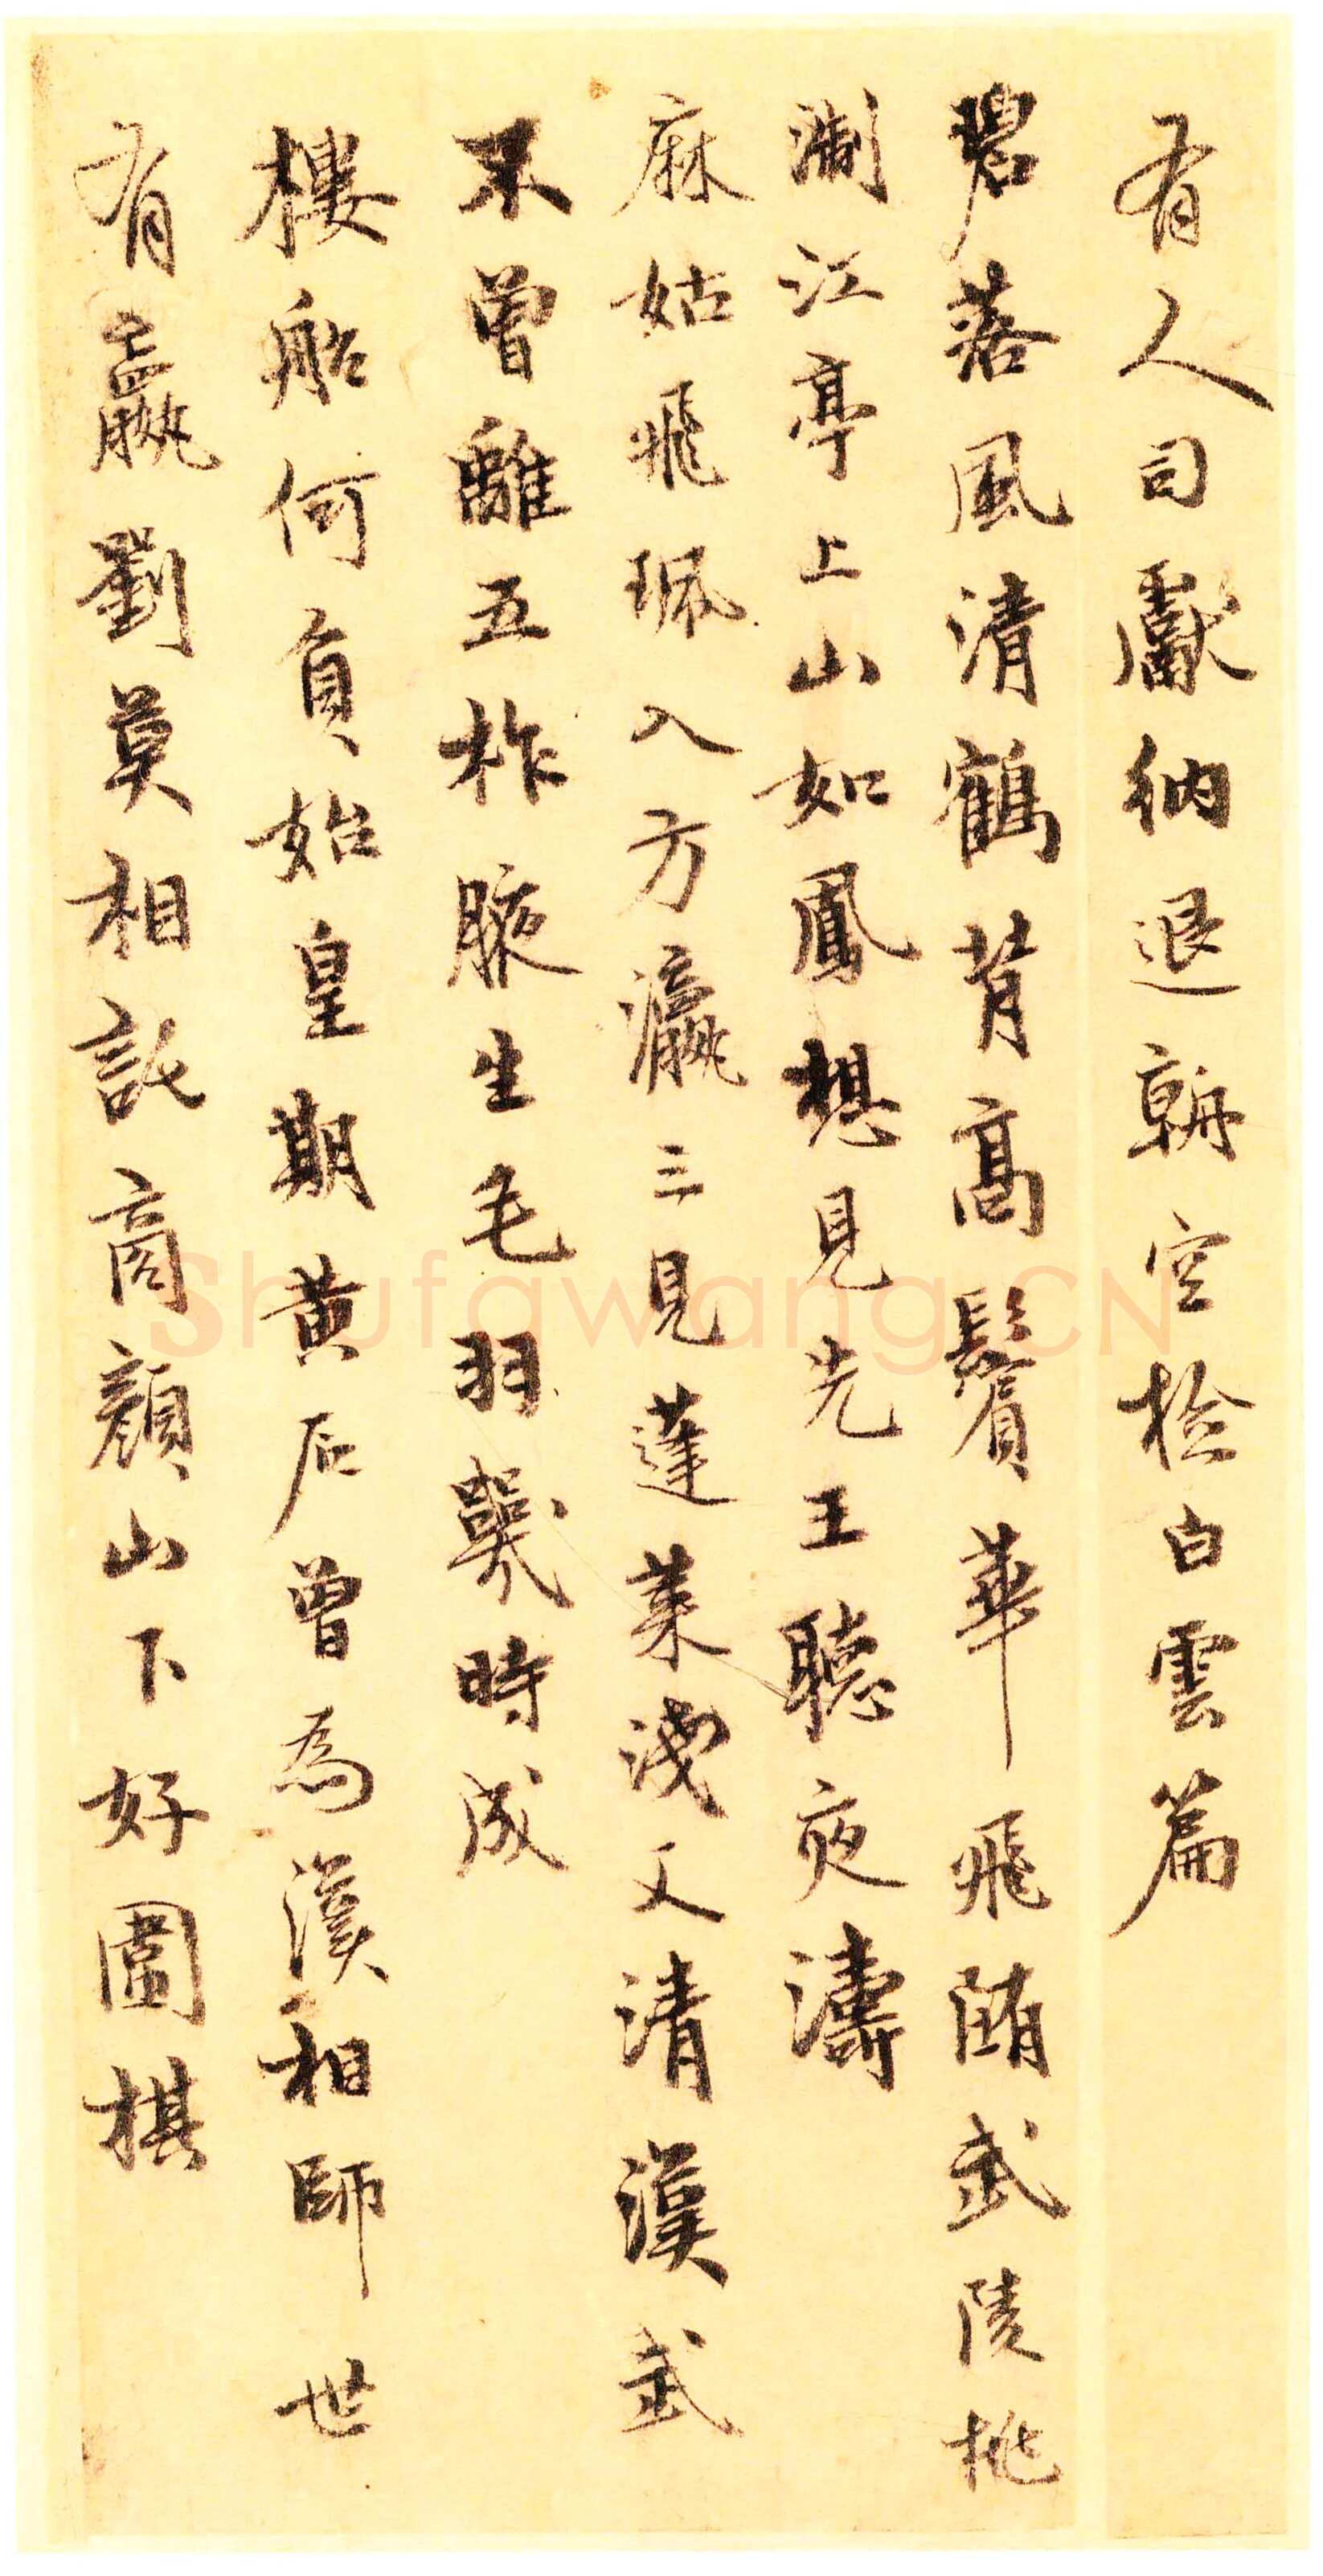 有人司獻納退朝空檢白雲篇
碧落風清鶴背高鬢華飛脯武陵桃
淛江亭上山如鳳想見先王聽夜濤
麻姑飛珮入方瀛三見蓬萊淺又清漢武
不曾離五柞腋生毛羽幾時成
樓船何負始皇期黃石曾為漢相師世
有嬴劉莫相託商顏山下好圍棋
Shufawang.CN